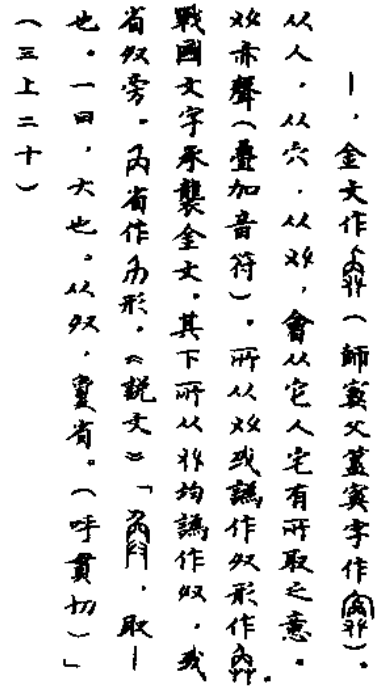 —，金文作（師寏父蓋寏字作）。
从人，从穴，从𠬞，會从它人宅有所取之意。
𠬞亦聲（疊加音符）。所从𠬞或譌作形作.
戰國文字承襲金文。其下所从均譌作，或
省旁。省作形。《説文》「，取—
也。一曰，大也。从，夐省。（呼貫切）」
（三上二十）